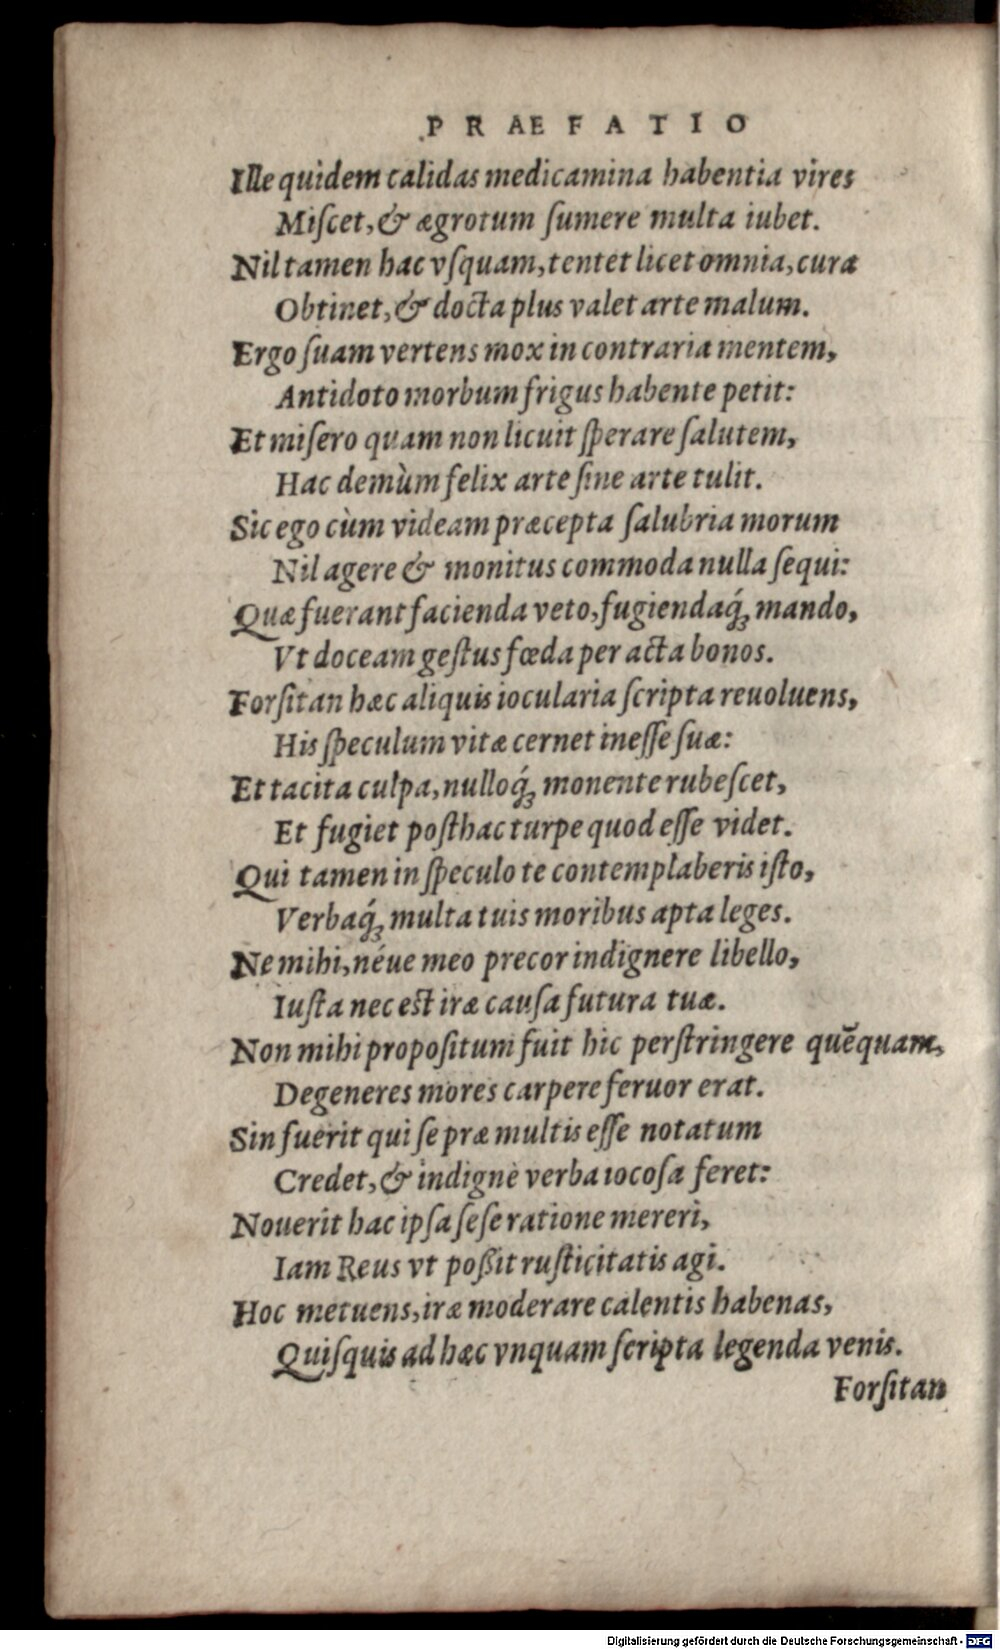 PRAEFATIO
Ille quidem calidas medicamina habentia vires
Miſcet, & ægrotum ſumere multa iubet.
Nil tamen hac vſquam, tentet licet omnia, cura
Obtinet, & docta plus valet arte malum.
Ergo ſuam vertens mox in contraria mentem,
Antidoto morbum frigus habente petit:
Et miſero quam non licuit ſperare ſalutem,
Hac demùm felix arte ſine arte tulit.
Sic ego cùm videam præcepta ſalubria morum
Nil agere & monitus commoda nulla ſequi:
Quæ fuerant facienda veto, fugiendaq́; mando,
Vt doceam geſtus fœda per acta bonos.
Forſitan hæc aliquis iocularia ſcripta reuoluens,
His ſpeculum vitæ cernet ineſſe ſuæ:
Et tacita culpa, nulloq́; monente rubeſcet,
Et fugiet poſthac turpe quod eſſe videt.
Qui tamen in ſpeculo te contemplaberis iſto,
Verbaq́; multa tuis moribus apta leges.
Ne mihi, néue meo precor indignere libello,
Iuſta nec est iræ cauſa futura tuæ.
Non mihi propoſitum fuit hic perſtringere quēquam,
Degeneres mores carpere feruor erat.
Sin fuerit qui ſe præ multis eſſe notatum
Credet, & indignè verba iocoſa feret:
Nouerit hac ipſa ſeſe ratione mereri,
Iam Reus vt poßit ruſticitatis agi.
Hoc metuens, iræ moderare calentis habenas,
Quiſquis ad hæc vnquam ſcripta legenda venis.
Forſitan
Digitalisierung gefördert durch die Deutsche Forschungsgemeinschaft - DFG